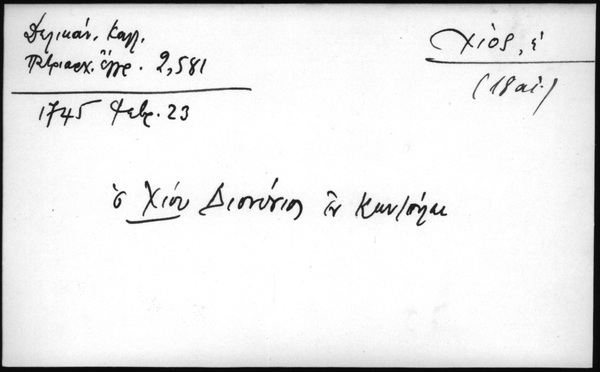 Δελικάν. Καλλ.
Πατριαρχ. ἔγγρ. 2,581
1745 Φεβρ. 23
Χίος, ἡ
(18 αἰ.)
ὁ Χίου Διονύσιος ἐν Κων/πόλει